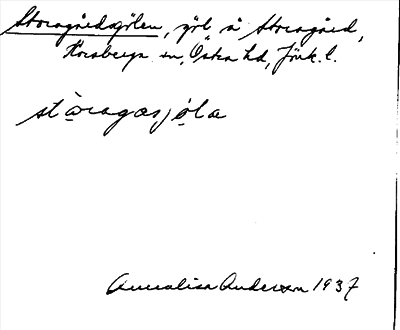 Storagårdsgölen, göl å Storagård,
Korsberga sn, Östra hd, Jönk. l.
stòragasjǫ̀la
Annalisa Anderson 1937